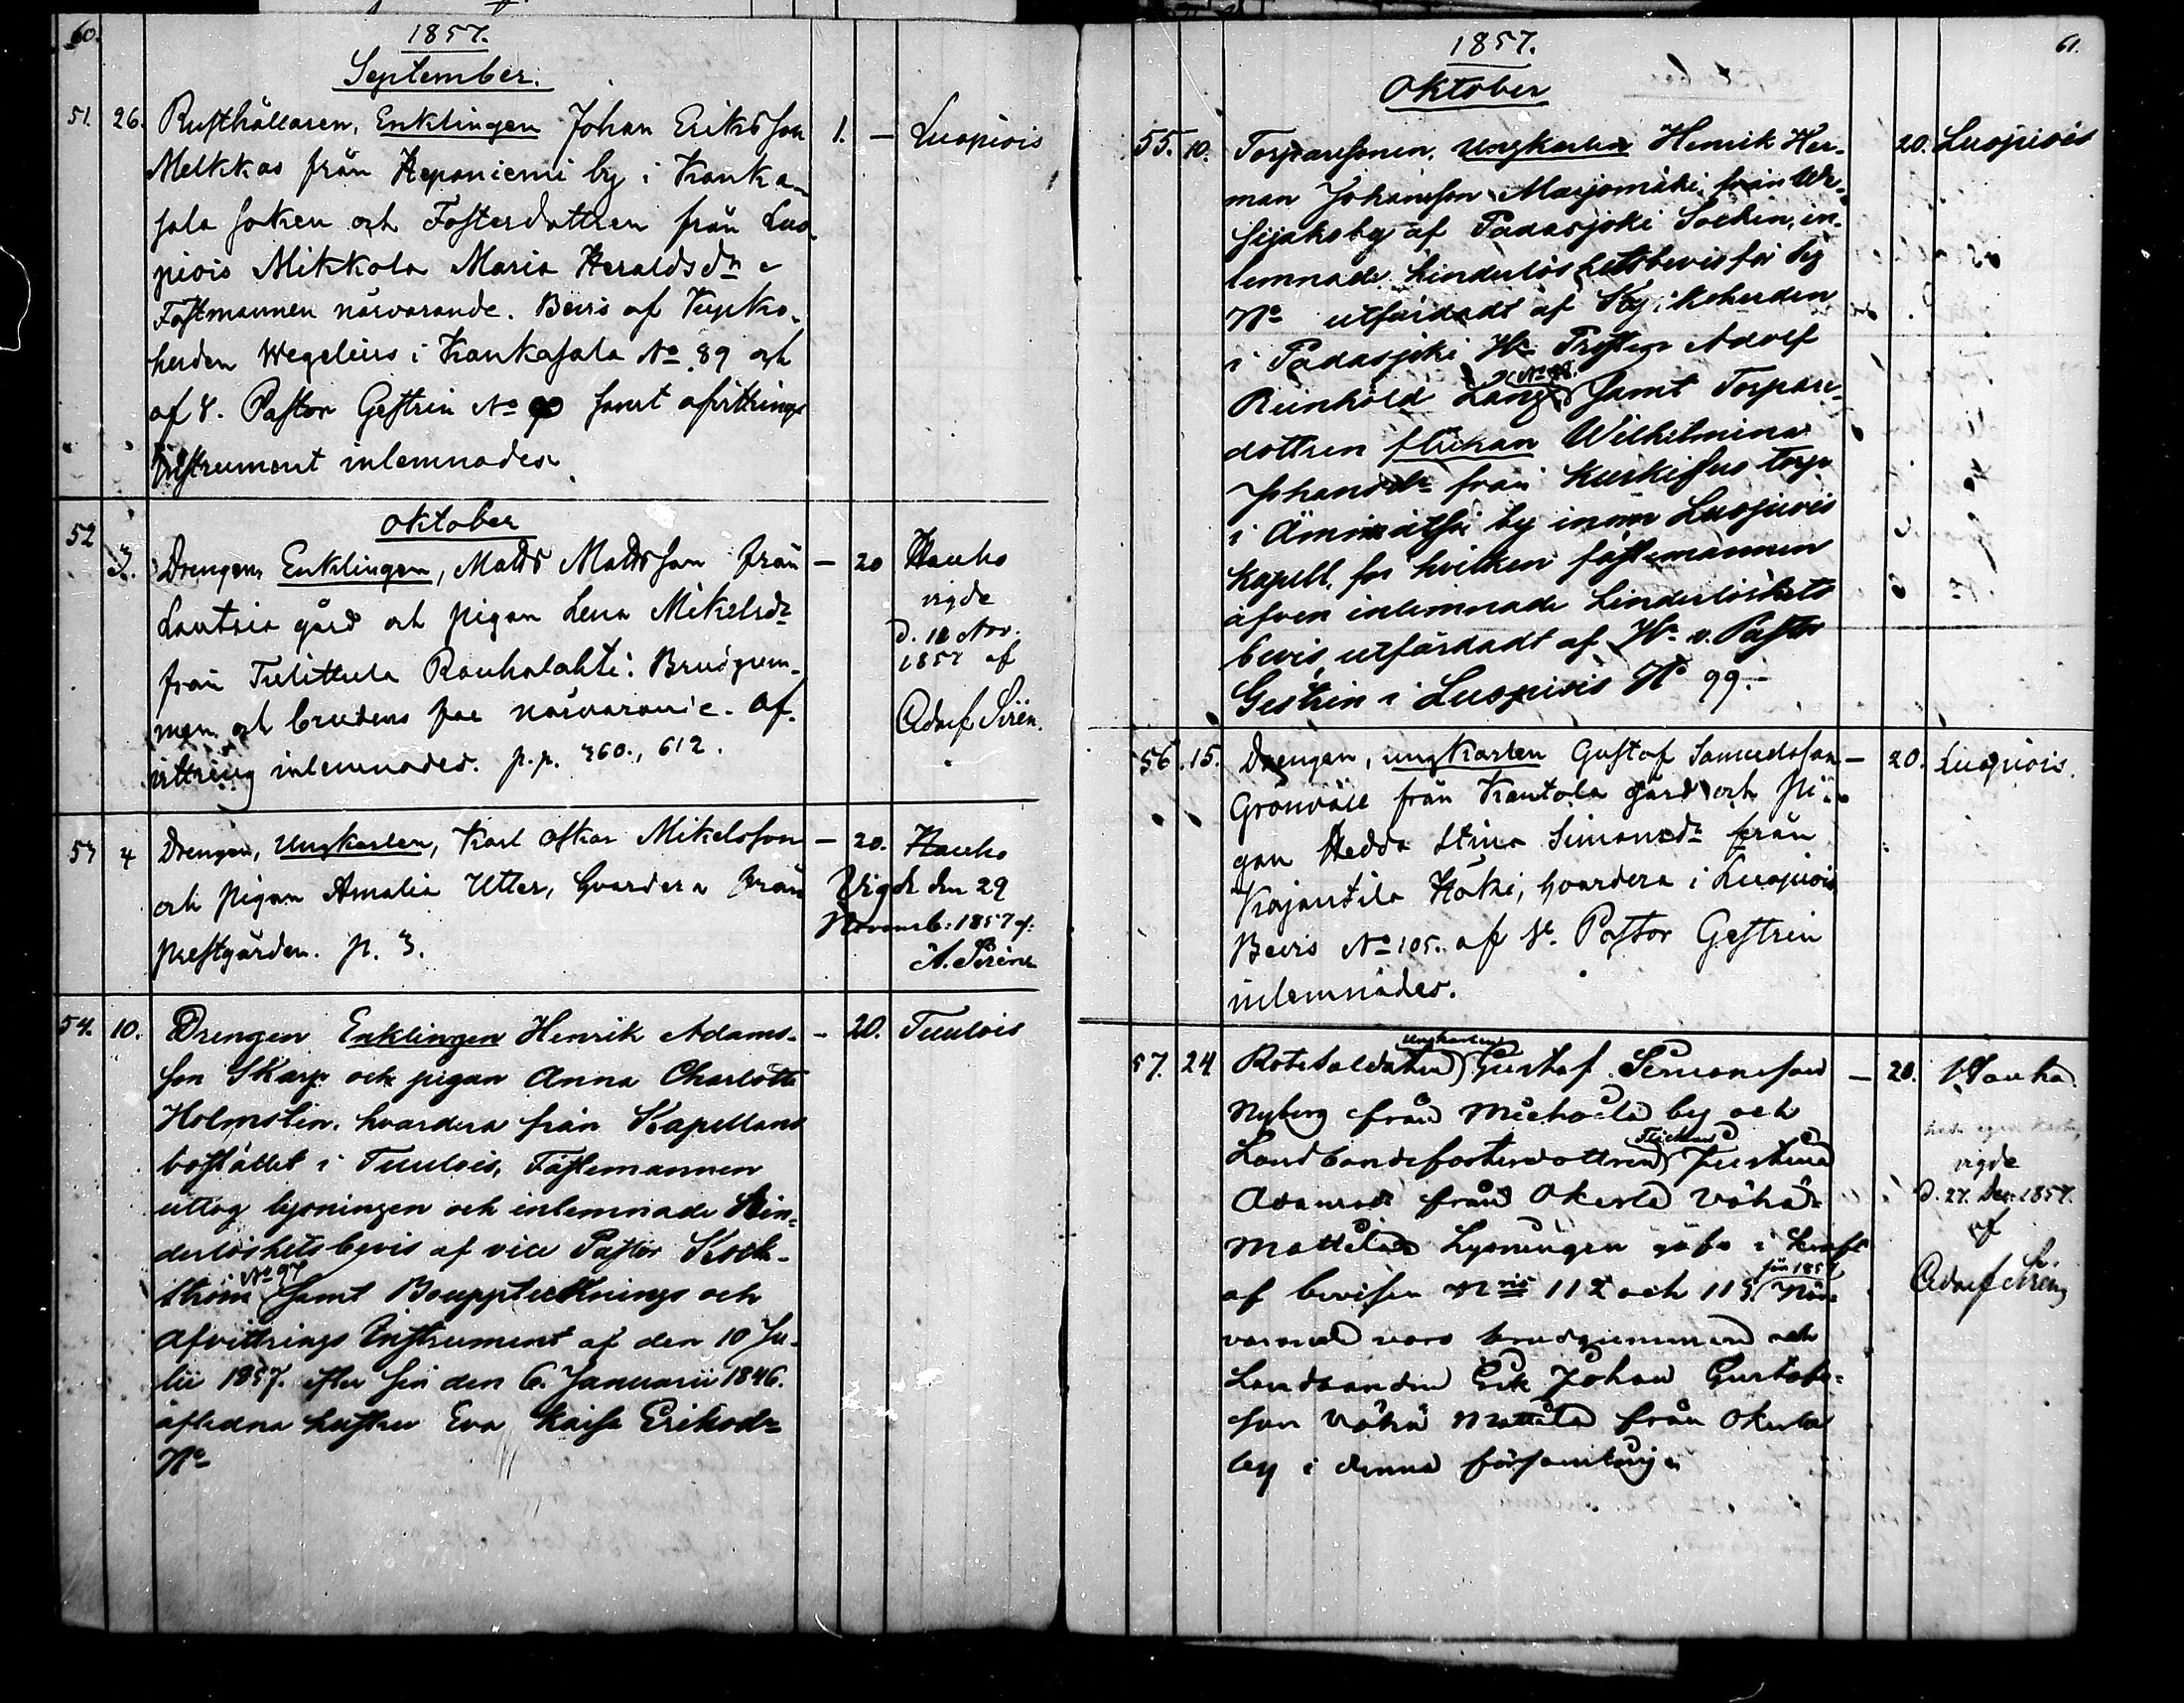 60.
1857.
September.
51. 26. Rusthållaren, Enklingen Johan Eriksson 1. — Luopiois
Melkkas från Heponiemi by i Kanka-
sala soken och Fosterdottren från Luo-
piois Mikkola Maria Heraldsdr
Fästmannen närvarande. Bevis af Kyrko-
herden Wegelius i Kankasala No 89 och
af v. Pastor Gestrin No samt afvittrings
instrument inlemnades.
Oktober
52 3. Drengen, Enklingen, Matts Mattsson från — 20 Hauho
Lautsia gård och pigan Lena Mikelsdr
från Tulittula Rauhalahti. Brudgum-
men och brudens far närvarande. Af-
vittring inlemnades. p.p. 360., 612.
vigde
d. 12 Nov.
1857 af
Adolf Sirén.
53 4 Drengen, Ungkarlen, Karl Oskar Mikelsson — 20. Hauho
och pigan Amalia Utter, hvardera från
prestgården. p. 3.
Vigde den 29
Novemb: 1857 af:
A. Sirén
54. 10. Drengen Enklingen Henrik Adams- — 20. Tuulois
son Skarp och pigan Anna Charlotta
Holmsten. hvardera från Kapellans
bostället i Tuulois, Fästemannen
uttog lysningen och inlemnade Hin-
derlöshetsbevis af vice Pastor
ström No 97 samt Bouppteknings och
Afvittrings Instrument af den 10 Ju-
lii 1857. efter sin den 6. Januarii 1846.
aflidna hustru Eva Kaisa Eriksdr
No
61.
1857.
Oktober
55. 10. Torparesonen, Ungkarlen Henrik Her- 20. Luopiois
man Johansson Marjomäki från We-
sijako by af Padasjoki Socken, in-
lemnade hinderlöshetsbevis för sig
No utfärdadt af Kyrkoherden
i Padasjoki Hr Prosten Adolf
Reinhold Lang No 98. samt Torpare-
dottren flickan Wilhelmina
Johansdr från Kurkisuo torp
i Ämmätsä by inom Luopiois
Kapell, för hvilken fästemannen
äfven inlemnade hinderlöshets
bevis utfärdadt af Hr v. Pastor
Gestrin i Luopiois No 99.—
56. 15. Drengen, ungkarlen Gustaf Samuelsson — 20. Luopiois.
Grönvall från Kantola gård och pi-
gan Hedda Stina Simonsdr från
Kajantila Höki, hvardera i Luopiois
Bevis No 105. af v. Pastor Gestrin
inlemnades.
57. 24. Rotesoldaten Ungkarlen Gustaf Simonsson — 20. Hauho.
Nyberg från Miehoila by och
Landbondefosterdottren Flickan Justina
Adamsdr från Okerla Vähä-
Mattila. Lysningen gafs i kraft
af bevisen Nris 112 och 115 för 1857. När-
varande voro brudgummen och
Landbonden Erik Johan Gustafs-
son Vähä Mattila från Okerla
by i denna församling.
vigde
d. 27. Dec. 1857.
af
Adolf Sirén